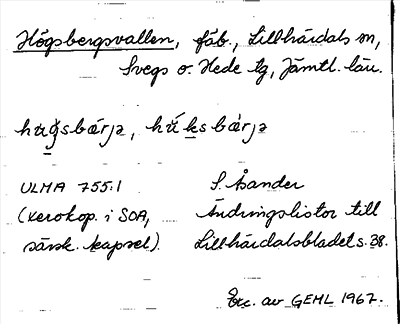 Högsbergsvallen, fäb., Lillhärdals sn,
Svegs o. Hede tg, Jämtl. län.
hug̀sbærjə, hu̇ksbærjə
ULMA 755:1 S. Åsander
(xerokop. i SOA, Ändringslistor till
särsk. kapsel). Lillhärdalsbladet s. 38.
Exc. av GEHL 1967.